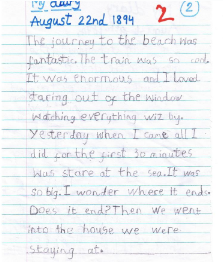 My diary
2
2
August 22nd 1894
The journey to the beach was
fantastic. The train was so cool.
It was enormous and I loved
staring out of the window
watching everything wiz by.
Yesterday when I came all I
did for the first 30 minutes
was stare at the sea. It was
so big. I wonder where it ends.
Does it end? Then we went
into the house we were
staying at.